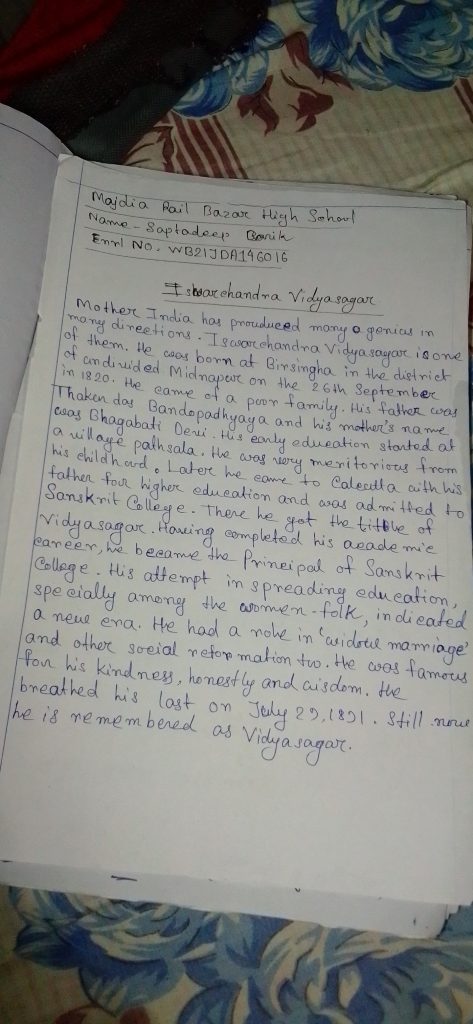 Majdia Rail Bazar High School
Name - Saptadeep Barik
Enrl No. WB21JDA146016
Iswarchandra Vidyasagar
Mother India has prouduced many genius in
many directions. Iswarchandra Vidyasagar is one
of them. He was born at Birsingha in the district
of undivided Midnapore on the 26th September
in 1820. He came of a poor family. His father was
Thakur das Bandopadhyaya and his mother's name
was Bhagabati Devi. His early education started at
a village pathsala. He was very meritorious from
his childhood. Later he came to Calcutta with his
father for higher education and was admitted to
Sanskrit College. There he got the tittle of
Vidyasagar. Having completed his academic
career, he became the Principal of Sanskrit
College. His attempt in spreading education,
specially among the women-folk, indicated
a new era. He had a role in 'widow marriage'
and other social reformation two. He was famous
for his kindness, honestly and wisdom. He
breathed his last on July 29, 1891. Still now
he is remembered as Vidyasagar.